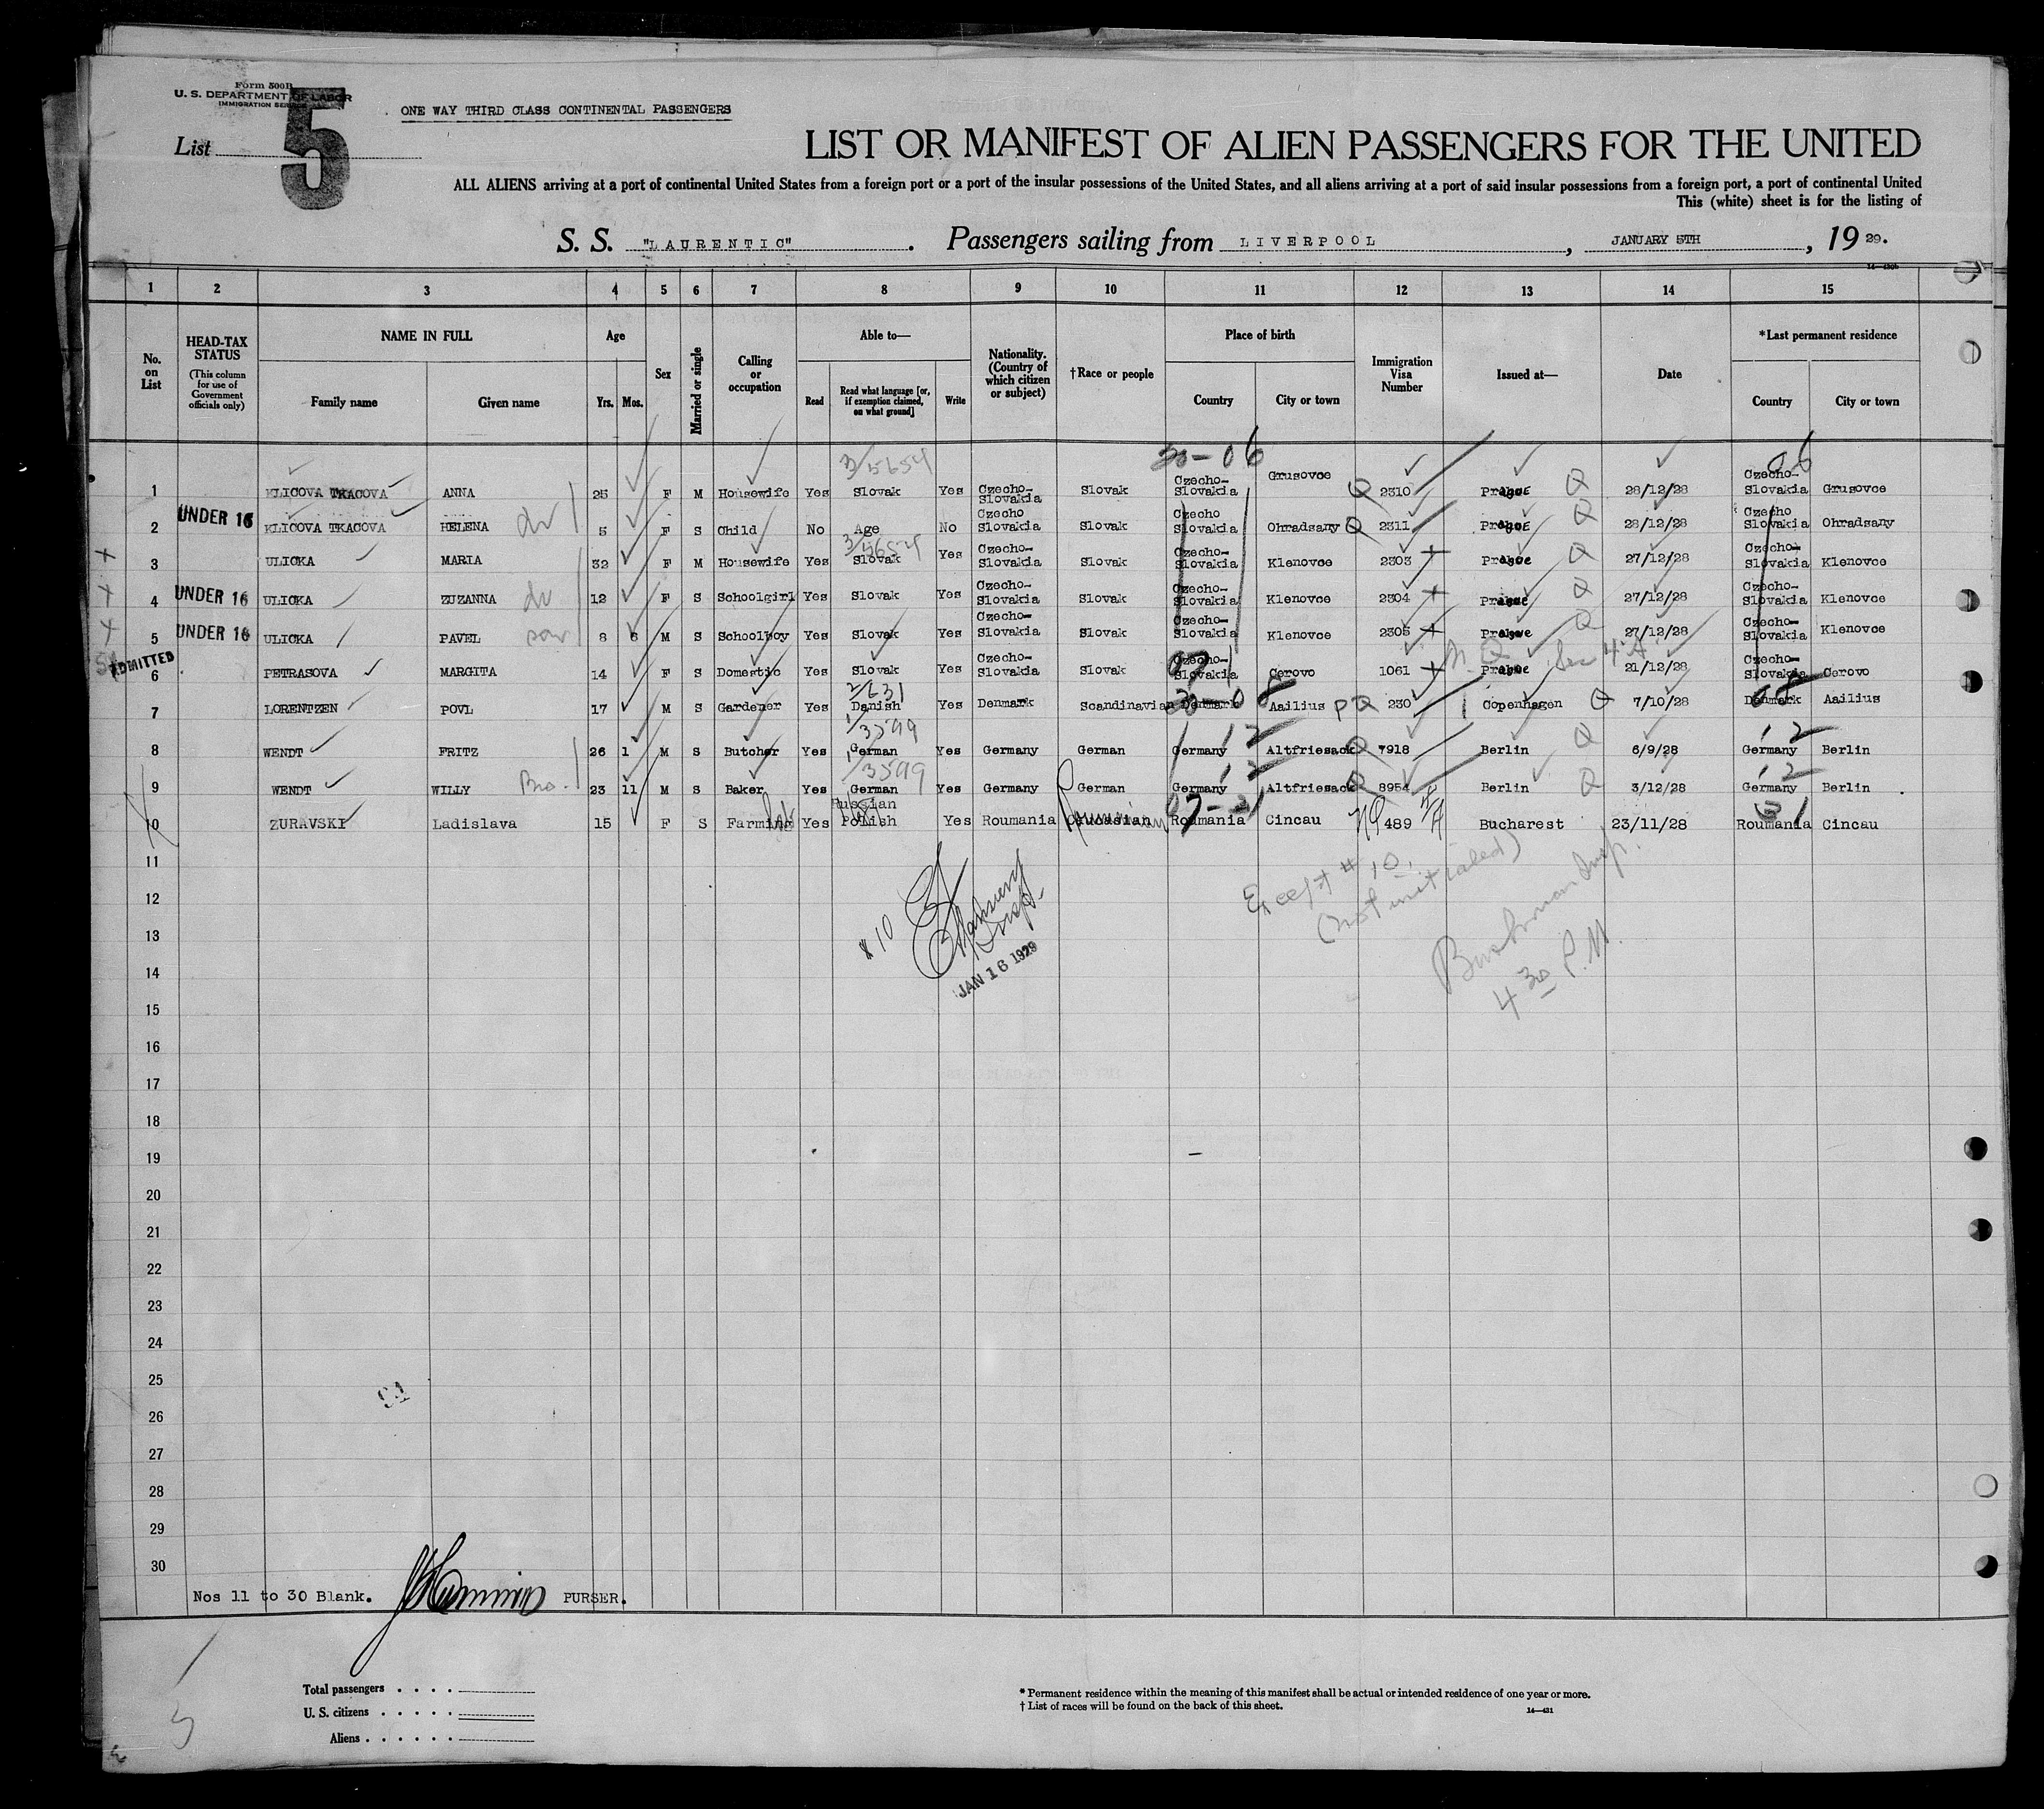 Form 500B
U. S. DEPARTMENT OF LABOR
IMMIGRATION SERVICE
ONE WAY THIRD CLASS CONTINENTAL PASSENGERS
List 5
LIST OR MANIFEST OF ALIEN PASSENGERS FOR THE UNITED
ALL ALIENS arriving at a port of continental United States from a foreign port or a port of the insular possessions of the United States, and all aliens arriving at a port of said insular possessions from a foreign port, a port of continental United
This (white) sheet is for the listing of
S. S. "LAURENTIC". Passengers sailing from LIVERPOOL, JANUARY 5TH, 19 29.
14—430b
1 2 3 4 5 6 7 8 9 10 11 12 13 14 15
No. on List
HEAD-TAX STATUS (This column for use of Government officials only)
NAME IN FULL Family name Given name
Age Yrs. Mos.
Sex
Married or single
Calling or occupation
Able to— Read Read what language [or, if exemption claimed, on what ground] Write
Nationality. (Country of which citizen or subject)
†Race or people
Place of birth Country City or town
Immigration Visa Number
Issued at—
Date
*Last permanent residence Country City or town
3/5654 30-06 06
1 KLICOVA TKACOVA ANNA 25 F M Housewife Yes Slovak Yes Czecho-Slovakia Slovak Czecho-Slovakia Grusovce Q 2310 Prague Q 28/12/28 Czecho-Slovakia Grusovce
2 UNDER 16 KLICOVA TKACOVA HELENA 5 F S Child No Age No Czecho Slovakia Slovak Czecho Slovakia Ohradsany Q 2311 Prague Q 28/12/28 Czecho Slovakia Ohradsany
3/5654
3 ULICKA MARIA 32 F M Housewife Yes Slovak Yes Czecho-Slovakia Slovak Czecho-Slovakia Klenovce 2303 Prague Q 27/12/28 Czecho-Slovakia Klenovce
4 UNDER 16 ULICKA ZUZANNA 12 F S Schoolgirl Yes Slovak Yes Czecho-Slovakia Slovak Czecho-Slovakia Klenovce 2304 Prague Q 27/12/28 Czecho-Slovakia Klenovce
5 UNDER 16 ULICKA PAVEL son 8 6 M S Schoolboy Yes Slovak Yes Czecho-Slovakia Slovak Czecho-Slovakia Klenovce 2305 Prague Q 27/12/28 Czecho-Slovakia Klenovce
6 ADMITTED PETRASOVA MARGITA 14 F S Domestic Yes Slovak Yes Czecho-Slovakia Slovak Czecho-Slovakia Cerovo 1061 Prague 21/12/28 Czecho-Slovakia Cerovo
2/631
7 LORENTZEN POVL 17 M S Gardener Yes Danish Yes Denmark Scandinavian Denmark Aailius PQ 230 Copenhagen Q 7/10/28 Denmark Aailius
1/3599 12 12
8 WENDT FRITZ 26 1 M S Butcher Yes German Yes Germany German Germany Altfriesack Q 7918 Berlin Q 6/9/28 Germany Berlin
1/3599 12 12
9 WENDT WILLY Bro. 23 11 M S Baker Yes German Yes Germany German Germany Altfriesack Q 8954 Berlin Q 3/12/28 Germany Berlin
Russian
10 ZURAVSKI Ladislava 15 F S Farming Yes Polish Yes Roumania Caucasian Roumania Cincau NQ 489 Bucharest 23/11/28 Roumania Cincau
11
Except # 10.
(not initialed)
12
13
JAN 16 1929
4 30 P.M.
14
15
16
17
18
19
20
21
22
23
24
25
26
27
28
29
30
Nos 11 to 30 Blank. PURSER.
Total passengers
U. S. citizens
Aliens
* Permanent residence within the meaning of this manifest shall be actual or intended residence of one year or more.
† List of races will be found on the back of this sheet.
14—431